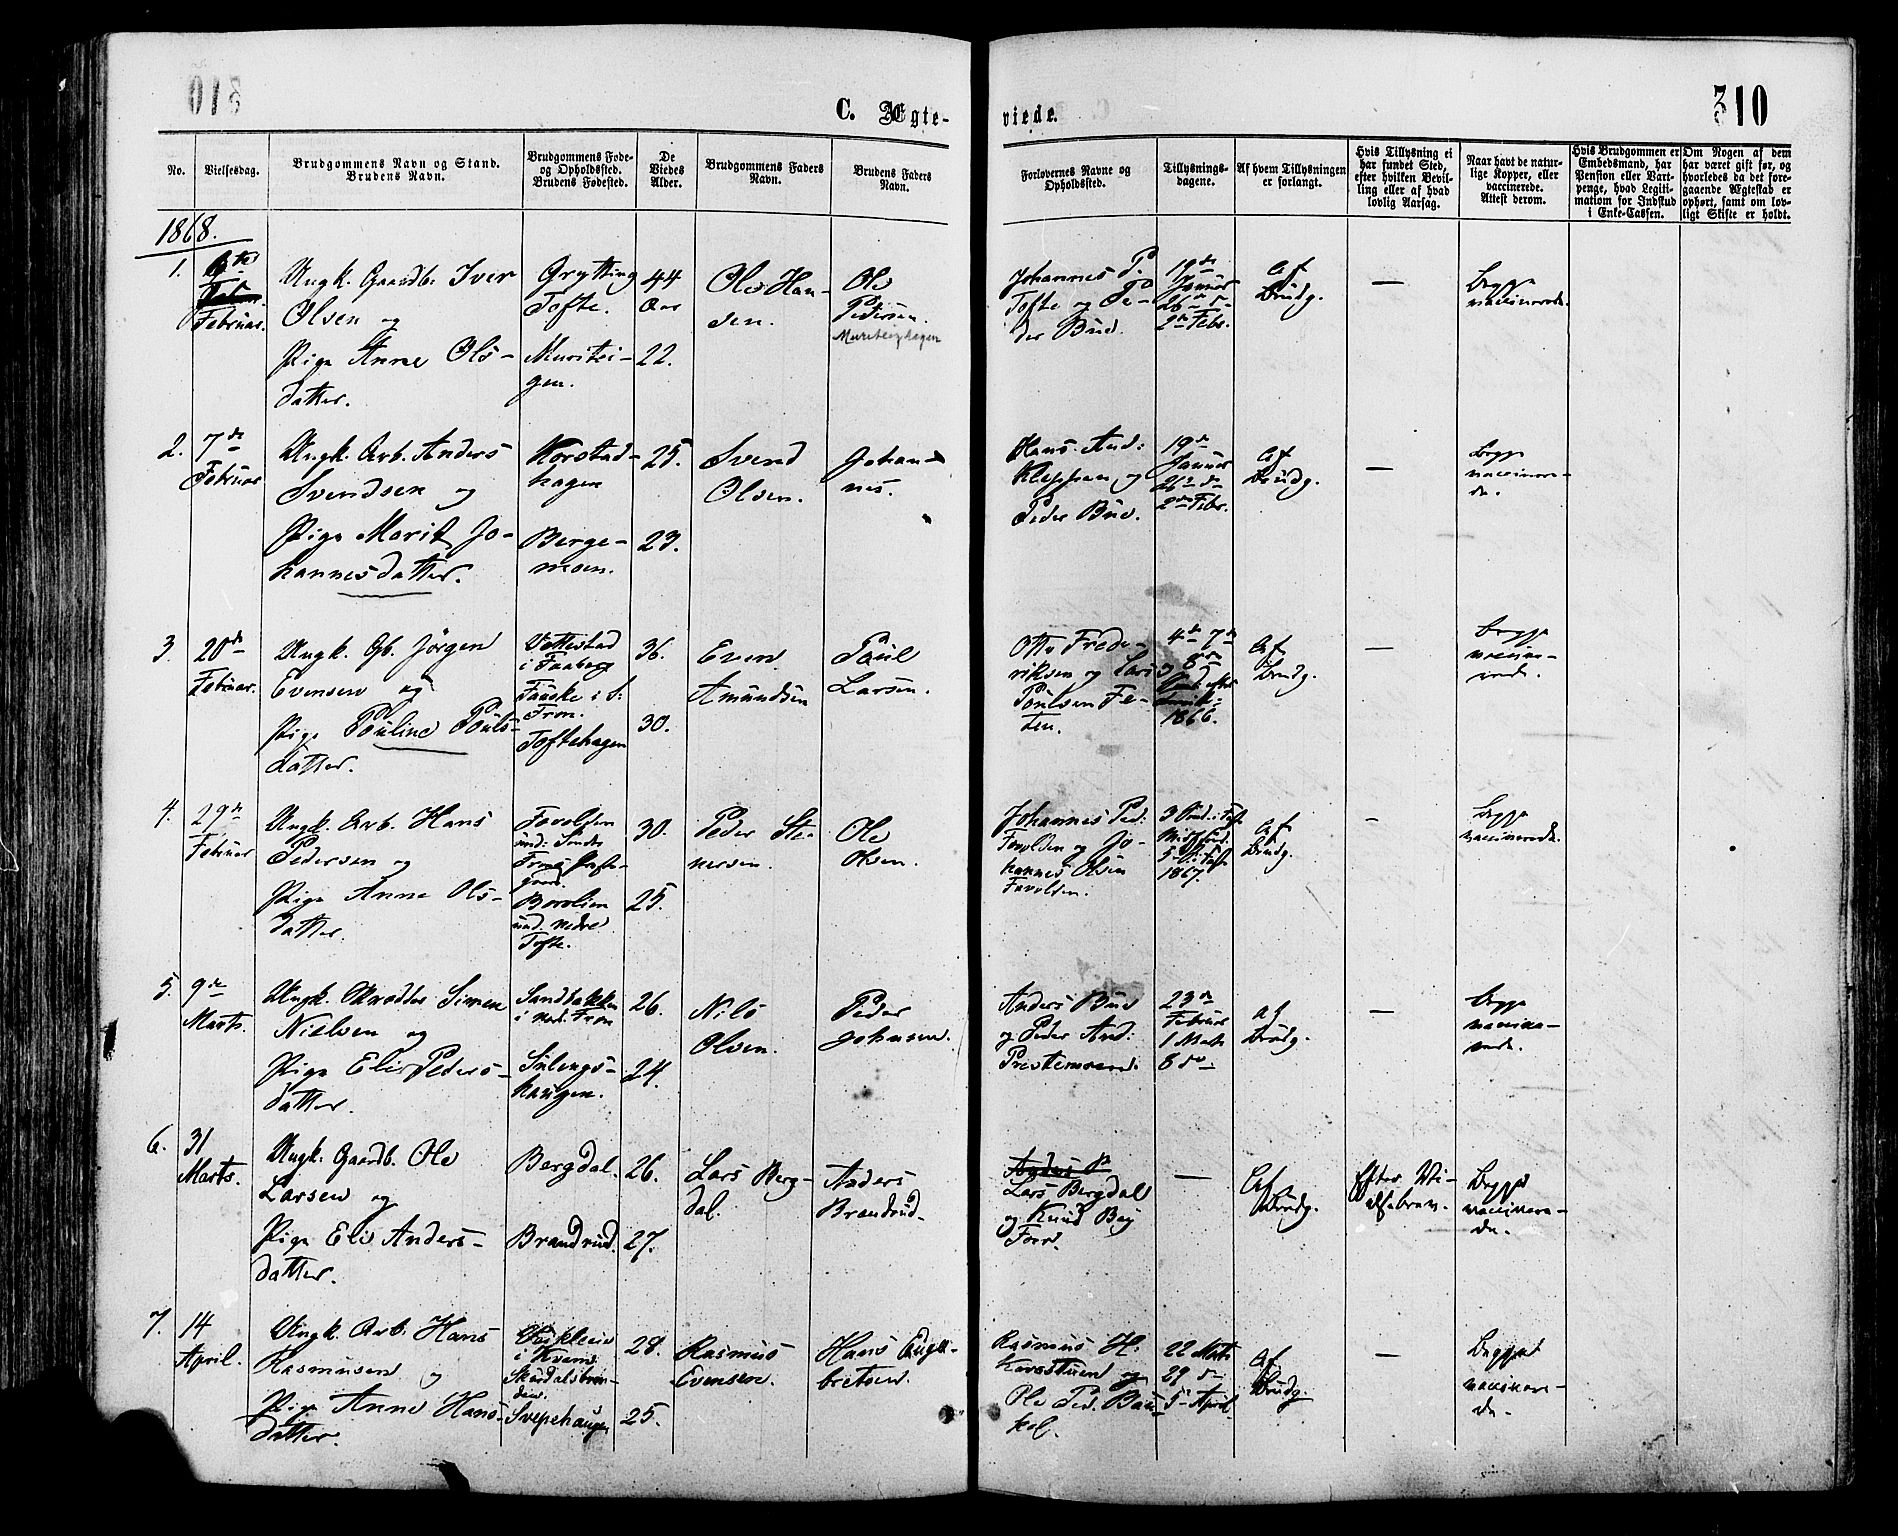 310
C. Ægte-
viede.
310
No.
Vielsesdag.
Brudgommens Navn og Stand.
Brudens Navn.
Brudgommens Føde-
og Opholdssted.
Brudens Fødested.
De
Viedes
Alder.
Brudgommens Faders
Navn.
Brudens Faders
Navn.
Forlovernes Navne og
Opholdssted.
Tillysnings-
dagene.
Af hvem Tillysningen
er forlangt.
Hvis Tillysning ei
har fundet Sted,
efter hvilken Bevil-
ling eller af hvad
lovlig Aarsag.
Naar havt de natur-
lige Kopper, eller
vaccinerede.
Attest derom.
Hvis Brudgommen er
Embedsmand, har
Pension eller Vart-
penge, hvad Legiti-
mation for Indskud
i Enke-Cassen.
Om Nogen af dem
har været gift før, og
hvorledes da det fore-
gaaende Ægteskab er
ophørt, samt om lov-
ligt Skifte er holdt.
1868.
1.
Februar.
Ungk. Gaardb. Iver
Olsen og
Pige Anne Ols-
datter.
Grytting
Tofte.
44
Aar
22.
Ole Han-
sen.
Ole
Pedersen.
Johannes P.
Tofte og Pe-
der Bue.
19de
Januar
26 d
2den Febr.
Af
Brudg.
—
Begge
vaccinerede.
2.
7de
Februar
Ungk. Arb. Anders
Svendsen og
Pige Marit Jo-
hannesdatter.
Korstad-
hagen
Berge-
moen.
25.
23.
Svend
Olsen.
Johan-
nes.
Hans And:
Kleppen og
Peder Bue.
19de
Januar
26de
2den Febr.
Af
Brudg.
—
Begge
vaccinere-
de.
3.
20de
Februar.
Ungk. Gb. Jørgen
Evensen og
Pige Pauline Pauls-
datter.
Vottestad
i Faaberg
Fron.
Toftehagen
36.
30.
Even
Amundsen
Paul
Larsen.
Otto Frede-
riksen og Lars
Poulsen
4de 7de
1866.
Af
Brudg.
—
Begge
4.
29de
Februar
Ungk. Arb. Hans
Pedersen og
Pige Anne Ols-
datter.
und. nedre
Tofte.
30.
25.
Peder Ste-
nersen.
Ole
Olsen.
Johannes Ped:
og Jo-
hannes Olsen
1867.
Af
Brudg.
-
Begge
vaccinerede.
5.
9de
Marts.
Ungk. Skrædder Simen
Nielsen og
Pige Eli Peders-
datter.
Sandbakken
i nord. Fron
26.
24.
Nils
Olsen.
Peder
Johnsen.
Anders Bue
og Peder And:
23de
Februar
1 Marts
8 do
Af
Brudg.
—
Begge
6.
31
Marts.
Ungk. Gaardb. Ole
Larsen og
Pige Eli Anders-
datter.
Bergdal.
Brandrud.
26.
27.
Lars Berg-
dal.
Anders
Brandrud.
Lars Bergdal
og Knud
—
Af
Brudg.
Efter Vi-
elsebrev.
Begge
vaccinere-
de.
7.
14
April.
Ungk. Arb. Hans
Rasmusen og
Pige Anne Hans-
datter.
i Kvam
Svepehaugen
28.
25.
Rasmus
Evensen.
Hans Enge-
bretsen.
Rasmus H.
og
Ole Ped. Bau-
kol.
22 Marts
29 do
5te April.
Af
Brudg.
—
Begge
vaccinere-
de.